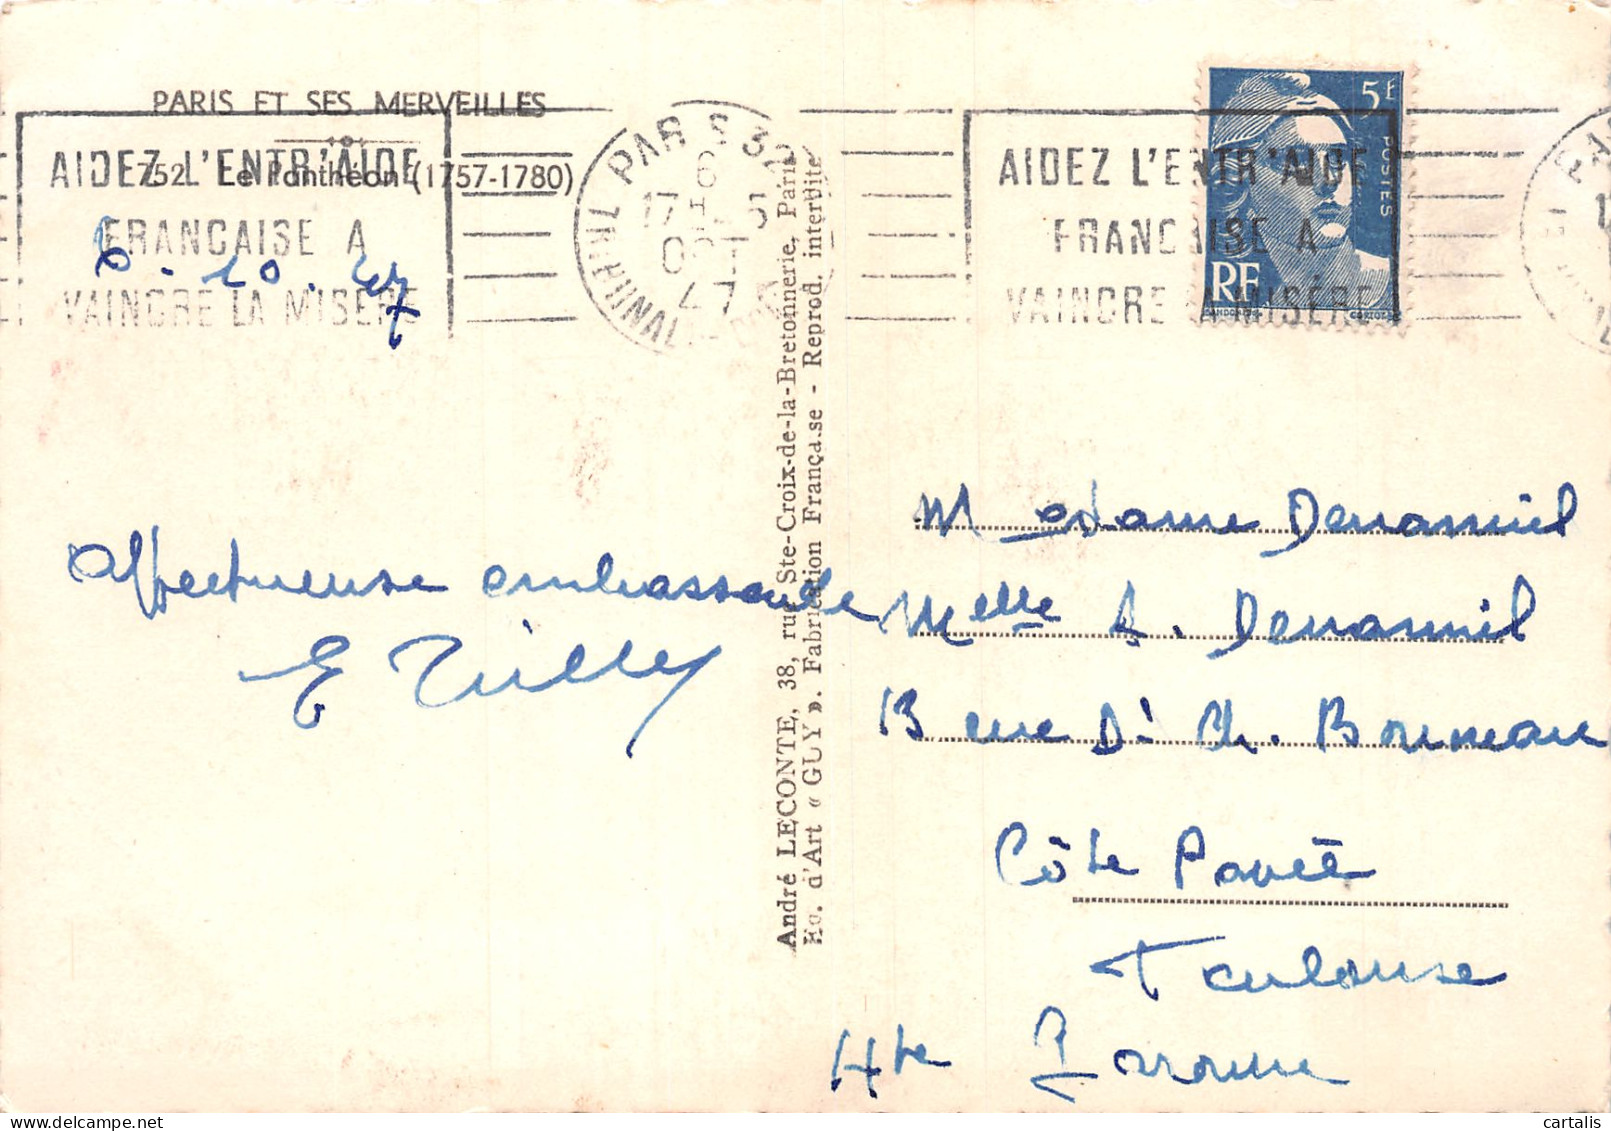 PARIS ET SES MERVEILLES
752. Le Panthéon (1757-1780)
AIDEZ L'ENTR'AIDE
FRANCAISE A
VAINCRE LA MISERE
PARIS 32
6
17
OCT
47
AIDEZ L'ENTR'AIDE
FRANCAISE A
VAINCRE LA MISÈRE
5F
POSTES
RF
GANDON
6-10-47
Affectueuse embrassade
E Tilly
André LECONTE, 38, rue Ste-Croix-de-la-Bretonnerie, Paris
Ed. d'Art « GUY ». Fabrication Française - Reprod. interdite
Madame
Melle A.
13 rue Dr Ch.
Côte Pavée
Toulouse
Hte Garonne
cartalis